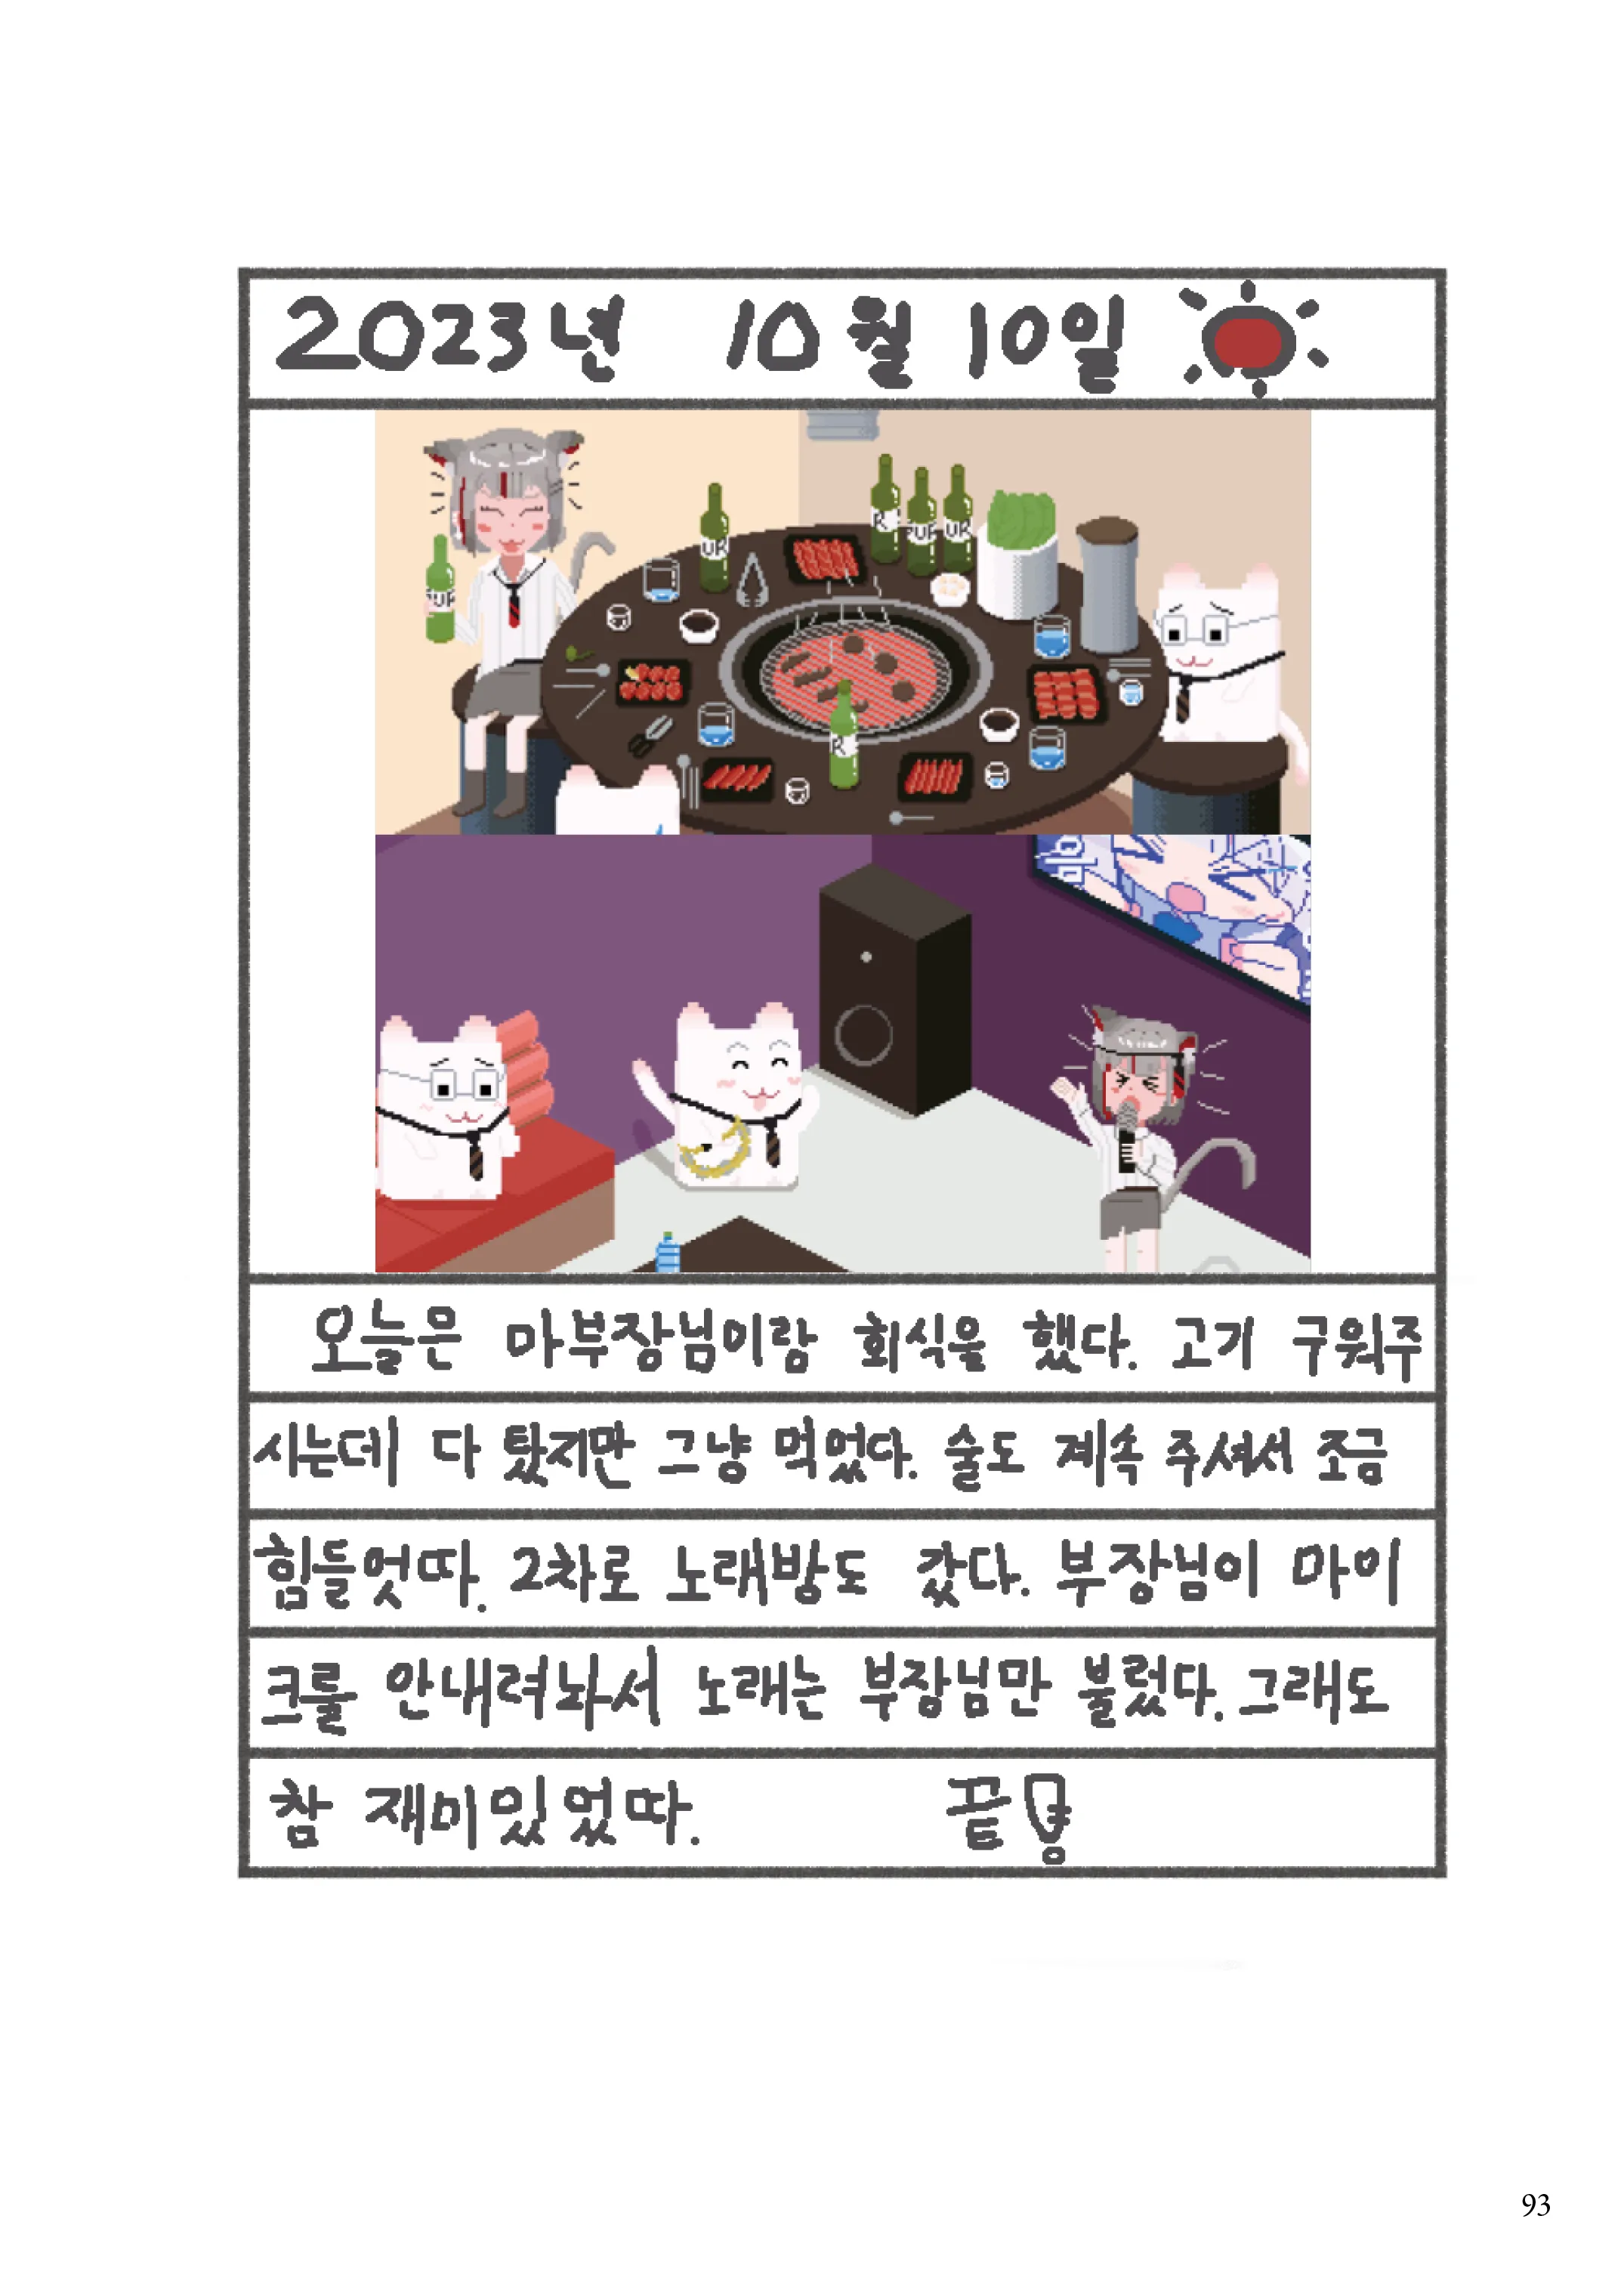 2023년 10월 10일
UR
R
PUR
UR
PUR
R
오늘은 마부장님이랑 회식을 했다. 고기 구워주
시는데 다 탔지만 그냥 먹었다. 술도 계속 주셔서 조금
힘들엇따. 2차로 노래방도 갔다. 부장님이 마이
크를 안내려놔서 노래는 부장님만 불렀다. 그래도
참 재미있었따. 끝
93